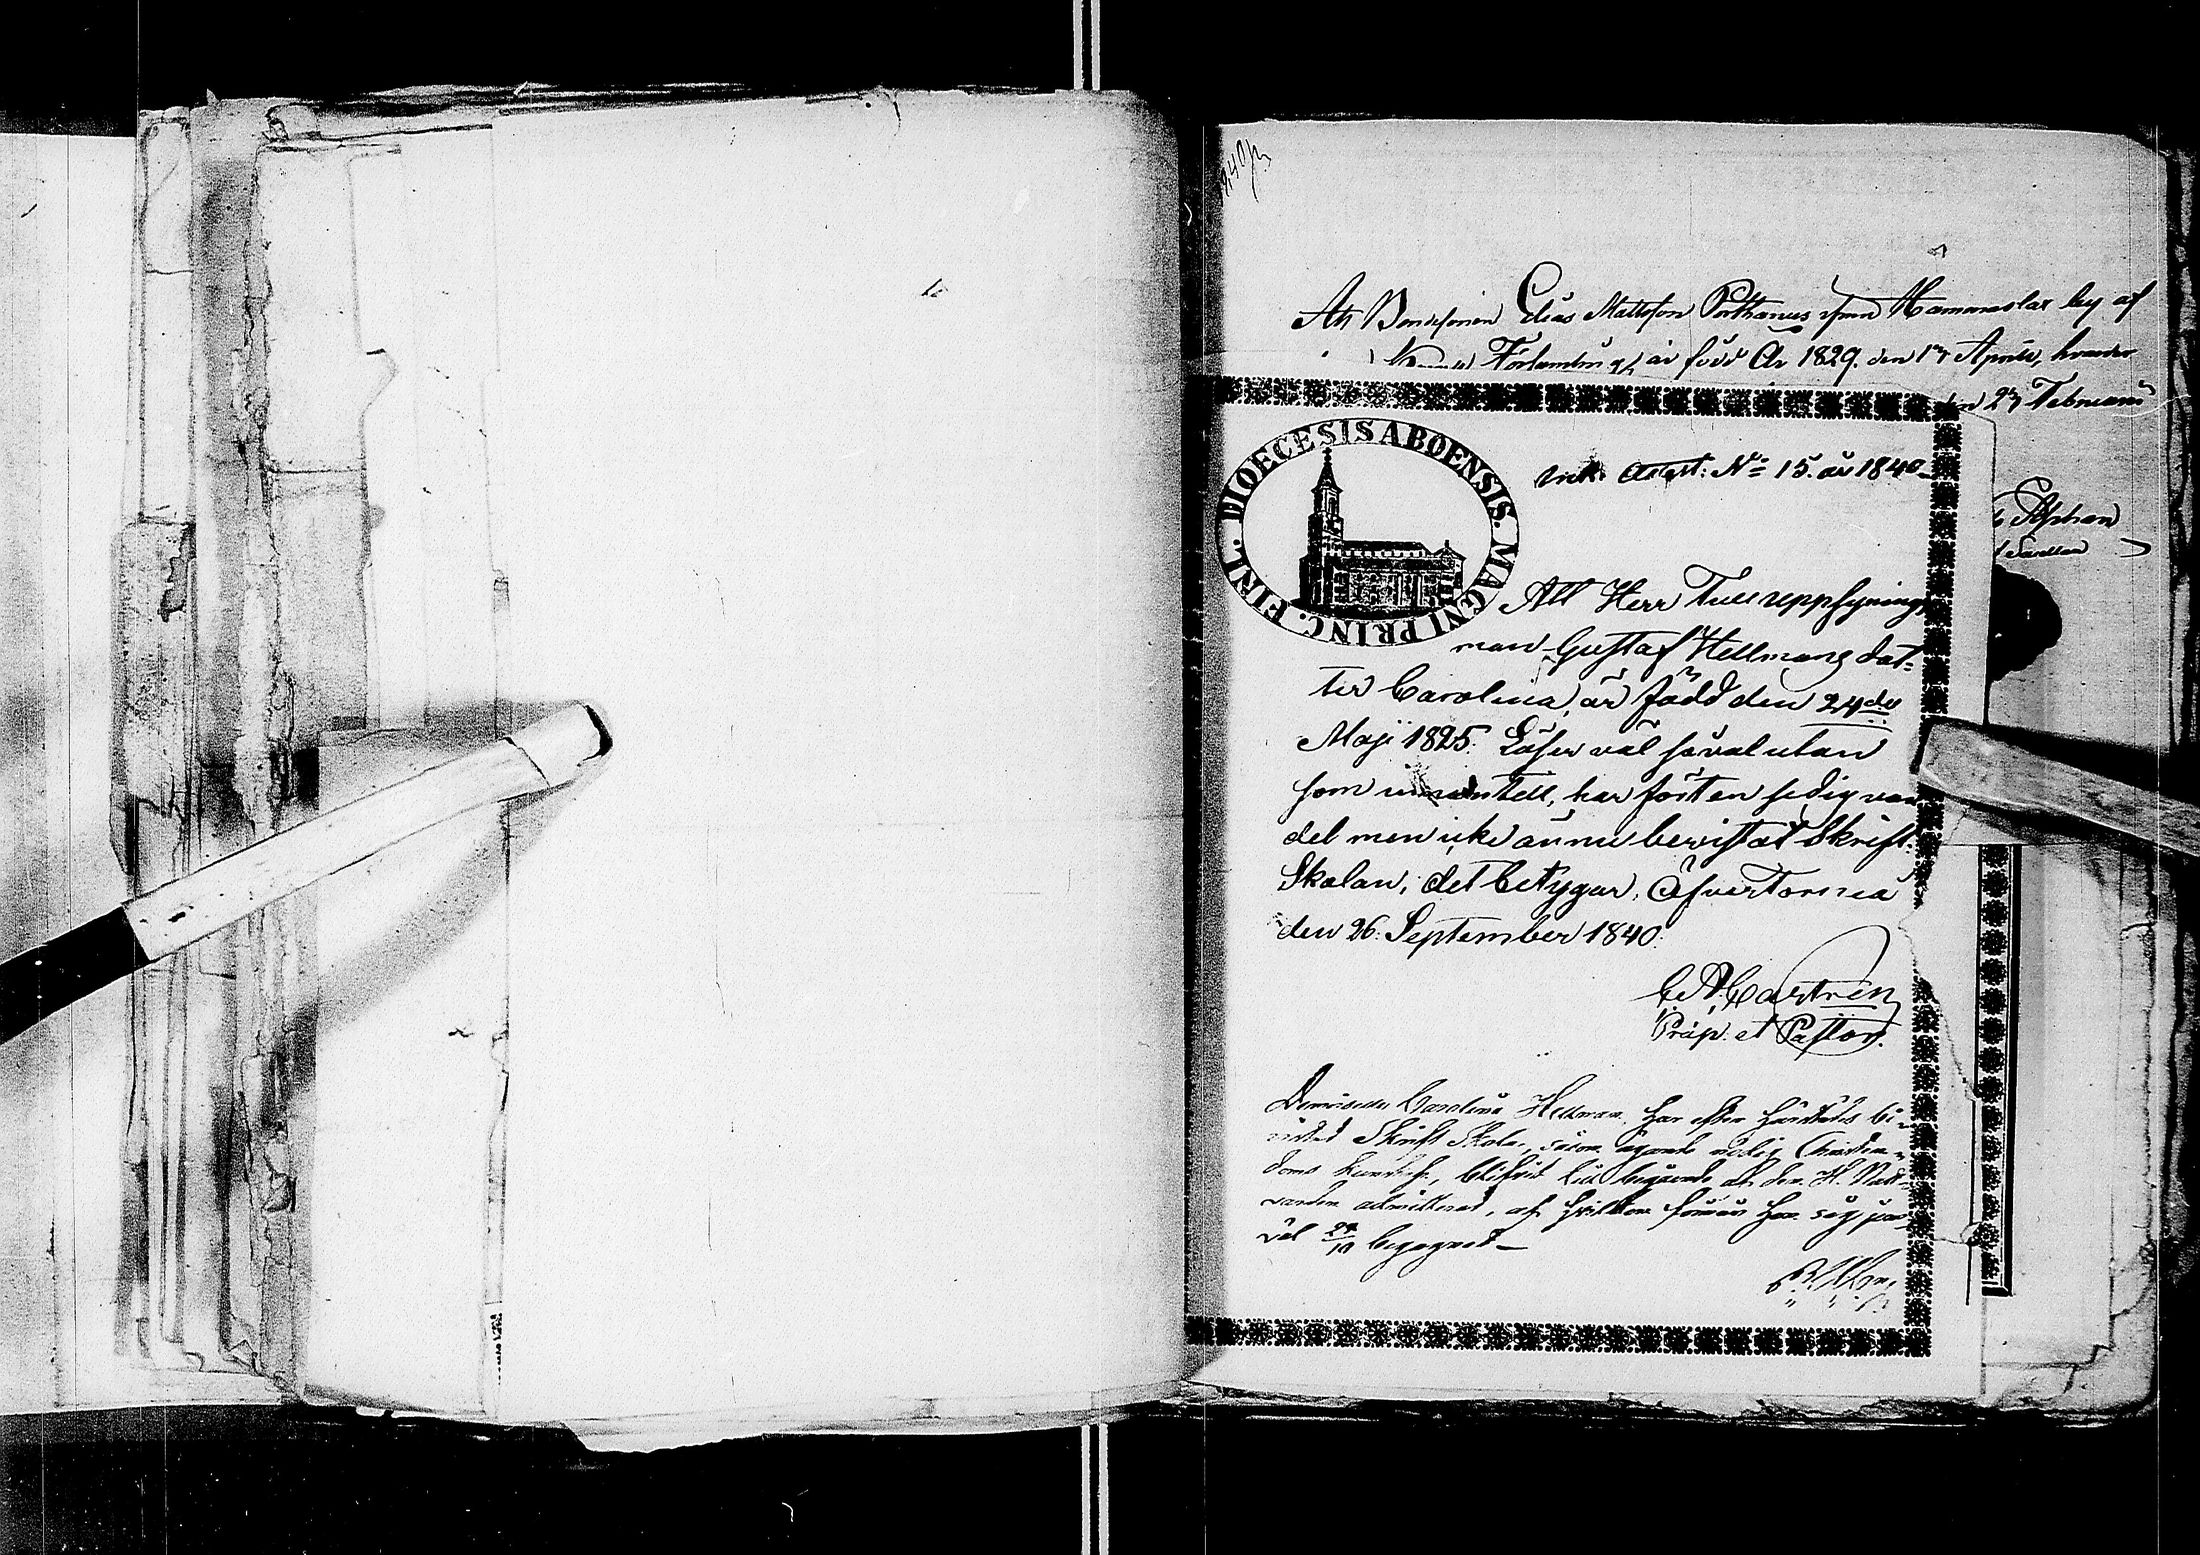 Att Bondesonen Elias Mattsson Porthanus ifrån Hammaslax by af
Församling, är född År 1829. den 17 Aprill,
27 Februarii
DIOECESIS ABOENSIS. MAGNI PRINC. FINL.
Attest: N:o 15. år 1840
Att Herr Tulluppsynings
man Gustaf Hellmans dot=
ter Carolina, är född den 24de
Maji 1825. Läser väl såväl utan
som innantill, har fört en sedig van
del men icke ännu bevistat Skrift:
Skolan, det betygar, Öfvertornea
den 26. September 1840.
C. A. Castrén
Præp. et Pastor.
Demoiselle Carolina Hellman har efter härstädes bi=
vistad Skrift Skola, såsom ägande nödig Christen=
doms kunskap, blifvit till begående af den H. Natt=
varden admitterad, af hvilken förmån hon sig jem
väl 24/10 begagnat